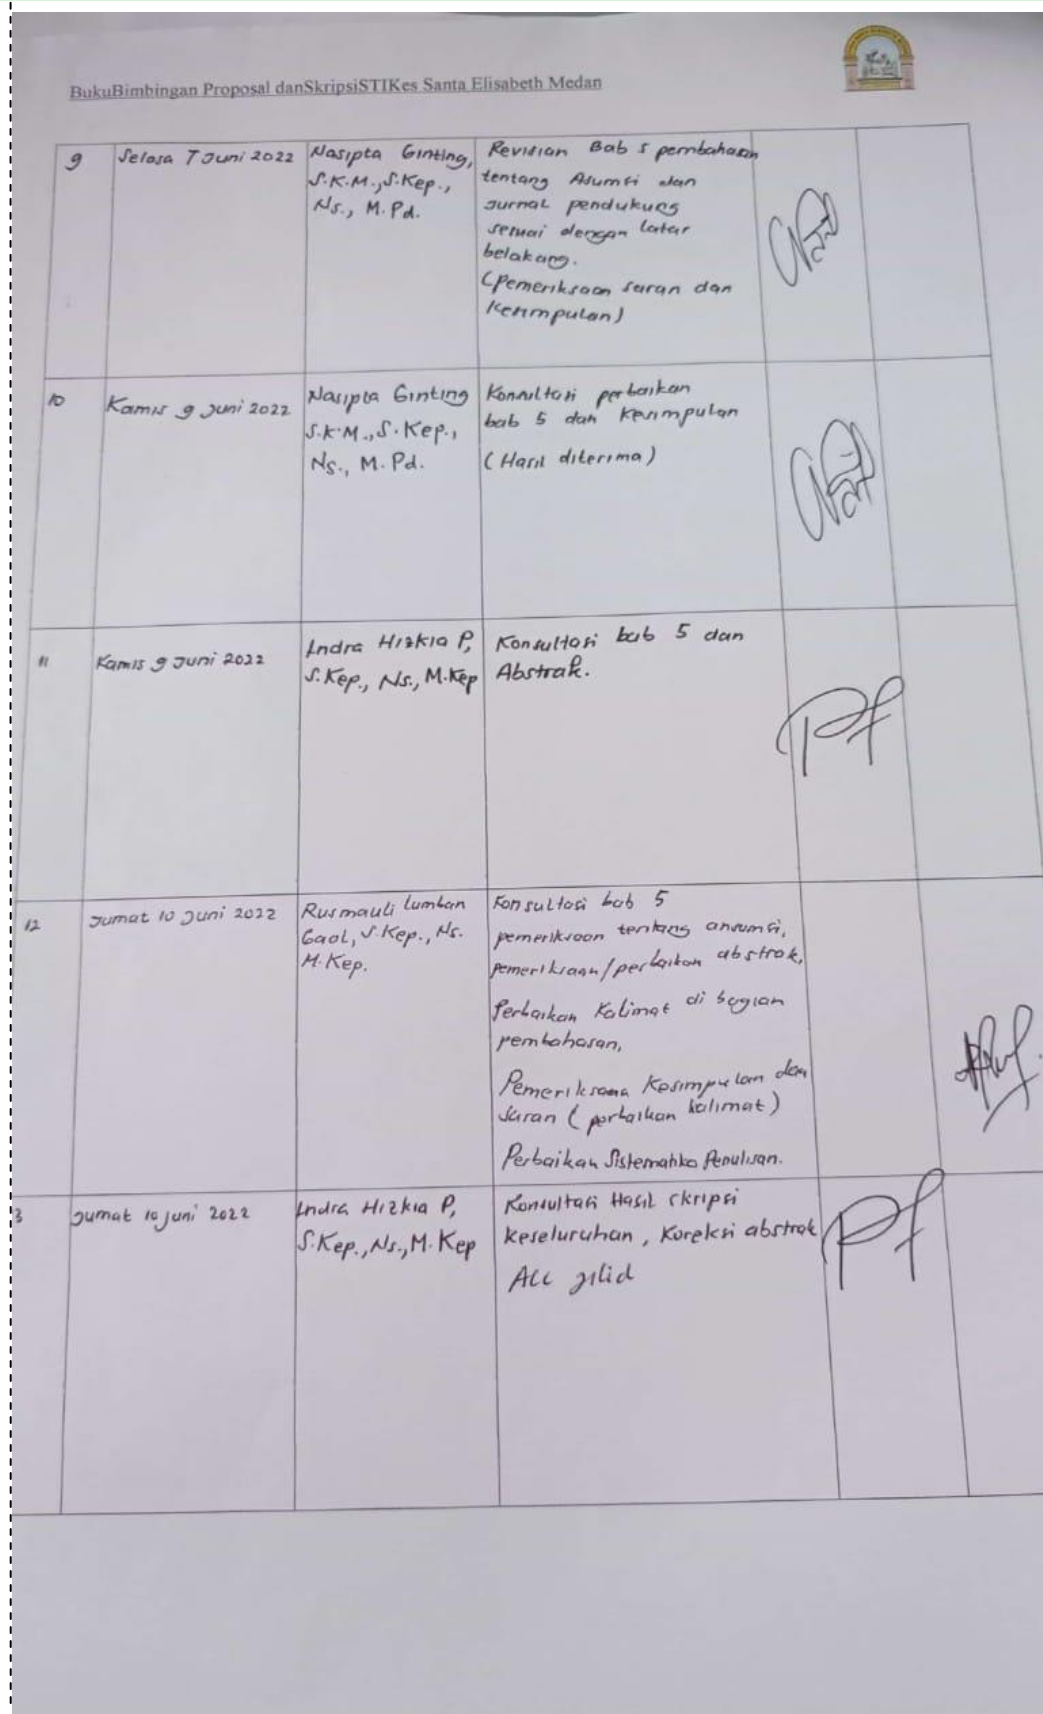 BukuBimbingan Proposal danSkripsiSTIKes Santa Elisabeth Medan
9
Selasa 7 Juni 2022
Nasipta Ginting,
S.K.M., S.Kep.,
Ns., M.Pd.
Revisian Bab 5 pembahasan
tentang Asumsi dan
Jurnal pendukung
sesuai dengan latar
belakang.
(Pemeriksaan saran dan
Kesimpulan)
10
Kamis 9 Juni 2022
Nasipta Ginting
S.K.M., S.Kep.,
Ns., M.Pd.
Konsultasi perbaikan
bab 5 dan Kesimpulan
(Hasil diterima)
11
Kamis 9 Juni 2022
Indra Hizkia P,
S.Kep., Ns., M.Kep
Konsultasi bab 5 dan
Abstrak.
12
Jumat 10 Juni 2022
Rusmauli Lumban
Gaol, S.Kep., Ns.
M.Kep.
Konsultasi bab 5
pemeriksaan tentang ansumsi,
pemeriksaan/perbaikan abstrak,
Perbaikan Kalimat di bagian
pembahasan,
Pemeriksana Kesimpulan dan
Saran (perbaikan kalimat)
Perbaikan Sistematika Penulisan.
3
Jumat 10 Juni 2022
Indra Hizkia P,
S.Kep., Ns., M.Kep
Konsultasi Hasil skripsi
keseluruhan, Koreksi abstrak
ACC jilid